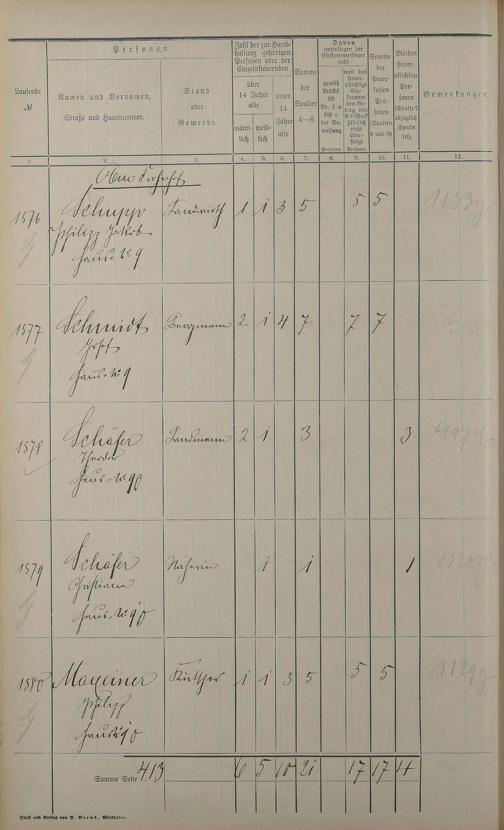 Laufende
№
Personen
Namen und Vornamen,
Straße und Hausnummer.
Stand
oder
Gewerbe.
Zahl der zur Haus-
haltung gehörigen
Personen oder der
Einzelsteuernden
über
14 Jahre
alte
männ-
lich
weib-
lich
unter
14
Jahre
alte
Summe
der
Spalten
4—6
Davon
unterliegen der
Einkommensteuer
nicht
gemäß
Artikel
weil das
steuer-
pflichtige
Ein-
kommen
den Be-
trag von
900 Mark
jährlich
nicht
über-
steigt
Personen
Personen
Summe
der
steuer-
freien
Per-
sonen
(Spalten
8 und 9)
Bleiben
steuer-
pflichtige
Per-
sonen
(Spalte 7
abzüglich
Spalte
10).
Bemerkungen.
1. 2. 3. 4. 5. 6. 7. 8. 9. 10. 11. 12.
1576 Schupp Landwirth 1 1 3 5 5 5
Philipp Jakob
Haus № 9
1577 Schmidt Bergmann 2 1 4 7 7 7
Haus № 9
1578 Schäfer Landmann 2 1 3 3
Theodor
Haus № 90
1579 Schäfer Näherin 1 1 1
Christiane
Haus № 90
1580 Mageiner 1 1 3 5 5 5
Philipp
Haus 90
Summa Seite 413 6 5 10 21 17 17 4
Druck und Verlag von P. Plaum, Wiesbaden.